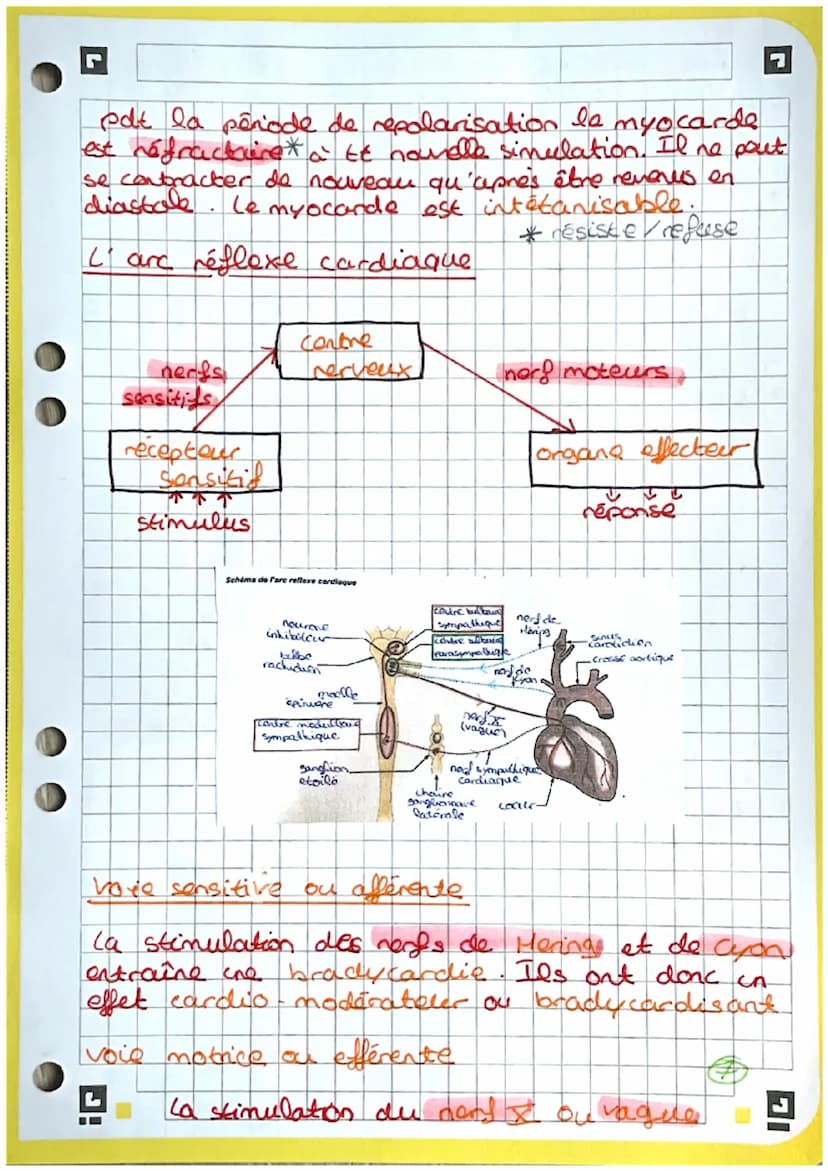 pdt la période de repolarisation le myocarde
est réfractaire* à tt nouvelle simulation. Il ne peut
se contracter de nouveau qu'après être revenus en
diastole. Le myocarde est intétanisable.
* résiste/refuse
L'arc réflexe cardiaque
centre
nerveux
nerfs
sensitifs
nerf moteurs
récepteur
sensitif
organe effecteur
stimulus
réponse
Schéma de l'arc reflexe cardiaque
neurone
inhibiteur
bulbe
rachidien
moelle
épinière
centre médullaire
sympathique
ganglion
étoilé
centre bulbaire
sympathique
centre bulbaire
parasympathique
nerf de
Hering
nerf de
cyon
sinus
carotidien
crosse aortique
nerf X
(vague)
nerf sympathique
cardiaque
chaîne
ganglionnaire
latérale
coeur
voie sensitive ou afférente
La stimulation des nerfs de Hering et de cyon
entraîne une bradycardie. Ils ont donc un
effet cardio-modérateur ou bradycardisant
voie motrice ou efférente
7
La stimulation du nerf X ou vague